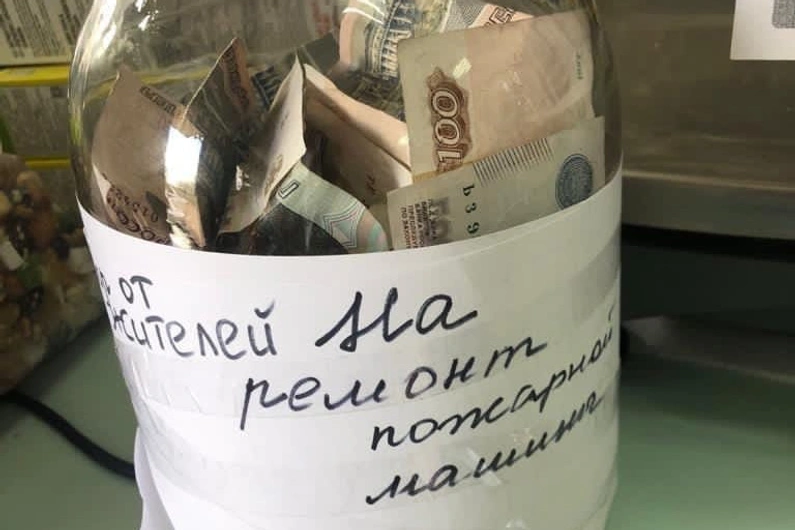 от
жителей
На
ремонт
пожарной
машины
100
Ь39